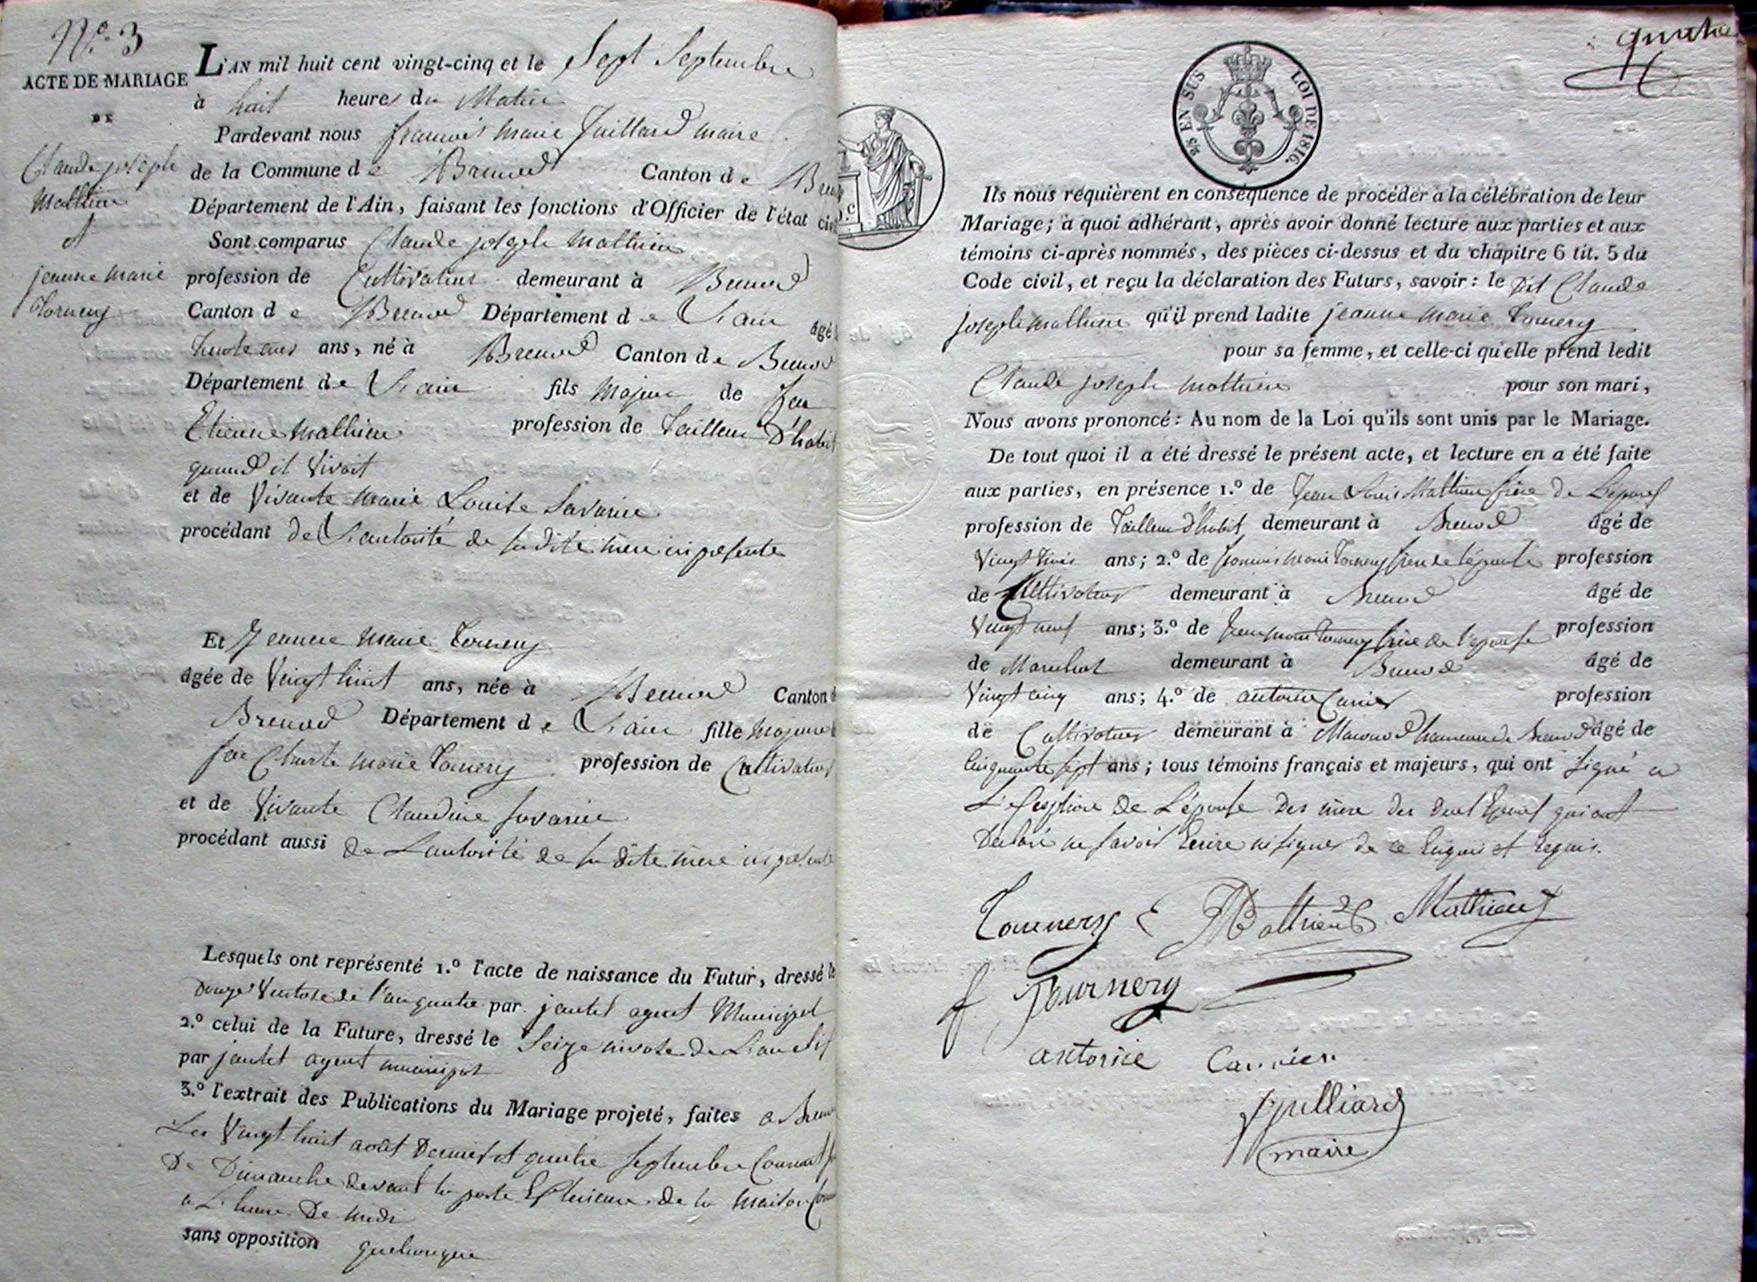 N.º 3
ACTE DE MARIAGE
DE
Claude joseph
Mathieu
et
jeanne marie
Tornery
L'AN mil huit cent vingt-cinq et le Sept Septembre
à huit heures du Matin
Pardevant nous françois marie Juillard maire
de la Commune de Brenod Canton de Bren
Département de l'Ain, faisant les fonctions d'Officier de l'état civil
Sont comparus Claude joseph mathieu
profession de Cultivateur demeurant à Brenod
Canton de Brenod Département de L'ain âgé
trente ans ans, né à Brenod Canton de Brenod
Département de L'ain fils Majeur de feu
Etienne mathieu profession de Tailleur D'habit
quand il Vivoit
et de Vivante marie Louise Savarin
procédant de L'autorité de sa dite mère ici présente
Et Jeanne marie Tornery
âgée de Vingt huit ans, née à Brenod Canton d
Brenod Département de L'ain fille Majeure d
feu Charle marie Tornery profession de Cultivateur
et de Vivante Claudine Savarin
procédant aussi de L'autorité de sa dite mère ici présente
Lesquels ont représenté 1.º l'acte de naissance du Futur, dressé le
Douze Ventose de l'an quatre par jantet agent Municipal
2.º celui de la Future, dressé le Seize nivose de L'an Six
par jantet agent municipal
3.º l'extrait des Publications du Mariage projeté, faites a Breno
Les Vingt huit août Dernier et quatre Septembre Courant
De Dimanche devant la porte Exterieure de la maison Com
a L'heure De midi
sans opposition quelconque
quatre
25 EN SUS LOI DE 1816.
Ils nous réquièrent en conséquence de procéder à la célébration de leur
Mariage; à quoi adhérant, après avoir donné lecture aux parties et aux
témoins ci-après nommés, des pièces ci-dessus et du chapitre 6 tit. 5 du
Code civil, et reçu la déclaration des Futurs, savoir: le Dit Claude
joseph mathieu qu'il prend ladite jeanne marie Tornery
pour sa femme, et celle-ci qu'elle prend ledit
Claude joseph mathieu pour son mari,
Nous avons prononcé: Au nom de la Loi qu'ils sont unis par le Mariage.
De tout quoi il a été dressé le présent acte, et lecture en a été faite
aux parties, en présence 1.º de Jean Louis Mathieu frère de L'epoux
profession de Tailleur d'habit demeurant à Brenod âgé de
Vingt trois ans; 2.º de françois marie Tornery frere de l'épouse profession
de Cultivateur demeurant à Brenod âgé de
Vingt neuf ans; 3.º de Jean marie Tornery frère de l'epouse profession
de Marechal demeurant à Brenod âgé de
Vingt cinq ans; 4.º de antoine Carrier profession
de Cultivateur demeurant à hameau de Brenod âgé de
Cinquante sept ans; tous témoins français et majeurs, qui ont signé a
L'exception de L'épouse des mère des deux Epoux qui ont
Declaré ne savoir Ecrire ni signer de ce Enquis et requis.
Tournery C Mathieu Mathieu
f Tournery
antoine Carrier
Juilliard
maire